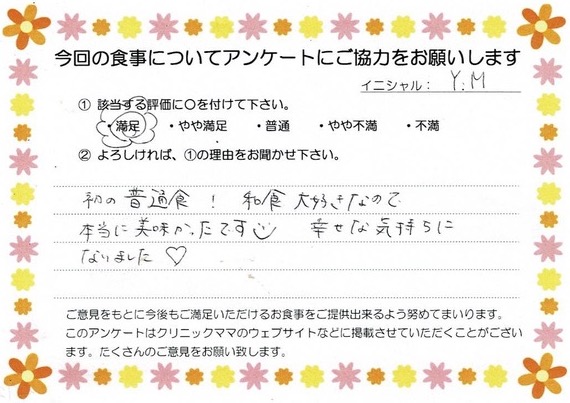 今回の食事についてアンケートにご協力をお願いします
イニシャル： Y.M
① 該当する評価に〇を付けて下さい。
・満足 ・やや満足 ・普通 ・やや不満 ・不満
② よろしければ、①の理由をお聞かせ下さい。
初の普通食！ 和食大好きなので
本当に美味かったです 幸せな気持ちに
なりました♡
ご意見をもとに今後もご満足いただけるお食事をご提供出来るよう努めてまいります。
このアンケートはクリニックママのウェブサイトなどに掲載させていただくことがござい
ます。たくさんのご意見をお願い致します。